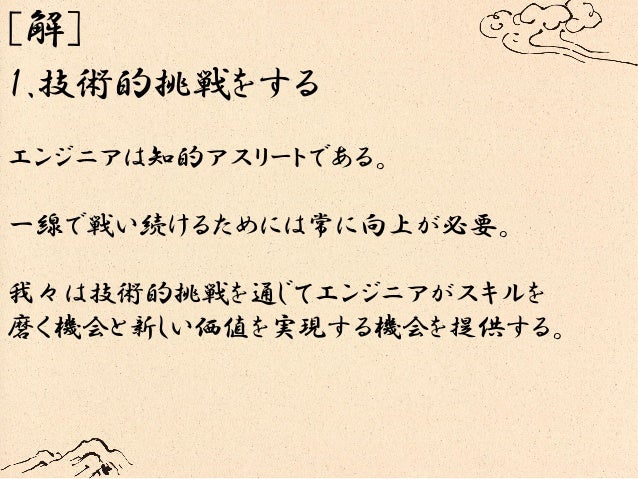 [解]
1.技術的挑戦をする
エンジニアは知的アスリートである。
一線で戦い続けるためには常に向上が必要。
我々は技術的挑戦を通じてエンジニアがスキルを
磨く機会と新しい価値を実現する機会を提供する。